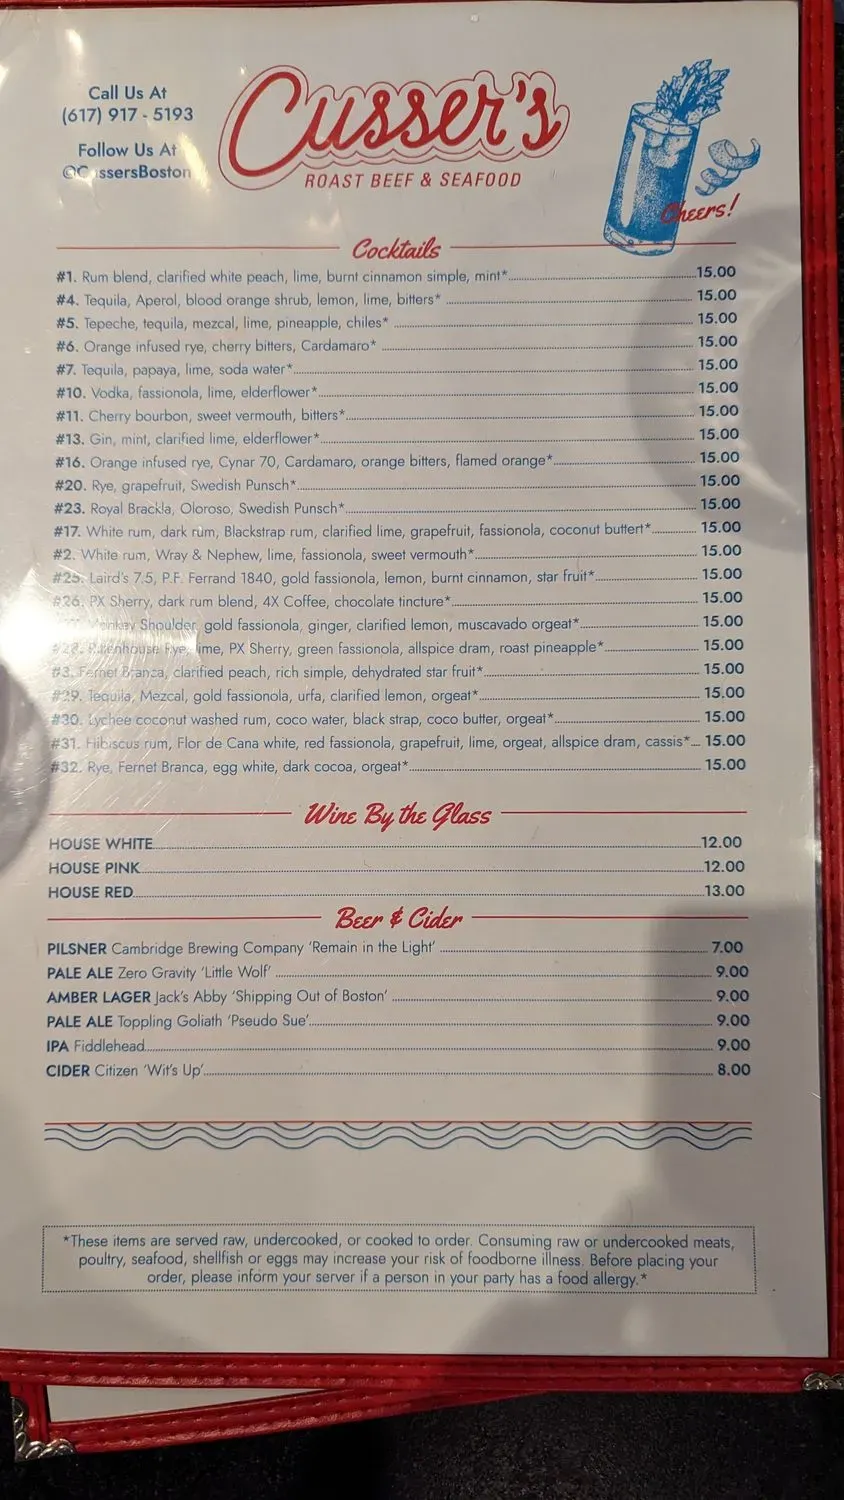 Call Us At
(617) 917 - 5193
Follow Us At
Cusser's
ROAST BEEF & SEAFOOD
Cheers!
Cocktails
#1. Rum blend, clarified white peach, lime, burnt cinnamon simple, mint* 15.00
#4. Tequila, Aperol, blood orange shrub, lemon, lime, bitters* 15.00
#5. Tepeche, tequila, mezcal, lime, pineapple, chiles* 15.00
#6. Orange infused rye, cherry bitters, Cardamaro* 15.00
#7. Tequila, papaya, lime, soda water* 15.00
#10. Vodka, fassionola, lime, elderflower* 15.00
#11. Cherry bourbon, sweet vermouth, bitters* 15.00
#13. Gin, mint, clarified lime, elderflower* 15.00
#16. Orange infused rye, Cynar 70, Cardamaro, orange bitters, flamed orange* 15.00
#20. Rye, grapefruit, Swedish Punsch* 15.00
#23. Royal Brackla, Oloroso, Swedish Punsch* 15.00
#17. White rum, dark rum, Blackstrap rum, clarified lime, grapefruit, fassionola, coconut buttert* 15.00
#2. White rum, Wray & Nephew, lime, fassionola, sweet vermouth* 15.00
#25. Laird's 7.5, P.F. Ferrand 1840, gold fassionola, lemon, burnt cinnamon, star fruit* 15.00
#26. PX Sherry, dark rum blend, 4X Coffee, chocolate tincture* 15.00
Shoulder, gold fassionola, ginger, clarified lemon, muscavado orgeat* 15.00
Rye, lime, PX Sherry, green fassionola, allspice dram, roast pineapple* 15.00
#3. Fernet Branca, clarified peach, rich simple, dehydrated star fruit* 15.00
#29. Tequila, Mezcal, gold fassionola, urfa, clarified lemon, orgeat* 15.00
#30. Lychee coconut washed rum, coco water, black strap, coco butter, orgeat* 15.00
#31. Hibiscus rum, Flor de Cana white, red fassionola, grapefruit, lime, orgeat, allspice dram, cassis* 15.00
#32. Rye, Fernet Branca, egg white, dark cocoa, orgeat* 15.00
Wine By the Glass
HOUSE WHITE 12.00
HOUSE PINK 12.00
HOUSE RED 13.00
Beer & Cider
PILSNER Cambridge Brewing Company 'Remain in the Light' 7.00
PALE ALE Zero Gravity 'Little Wolf' 9.00
AMBER LAGER Jack's Abby 'Shipping Out of Boston' 9.00
PALE ALE Toppling Goliath 'Pseudo Sue' 9.00
IPA Fiddlehead 9.00
CIDER Citizen 'Wit's Up' 8.00
*These items are served raw, undercooked, or cooked to order. Consuming raw or undercooked meats,
poultry, seafood, shellfish or eggs may increase your risk of foodborne illness. Before placing your
order, please inform your server if a person in your party has a food allergy.*